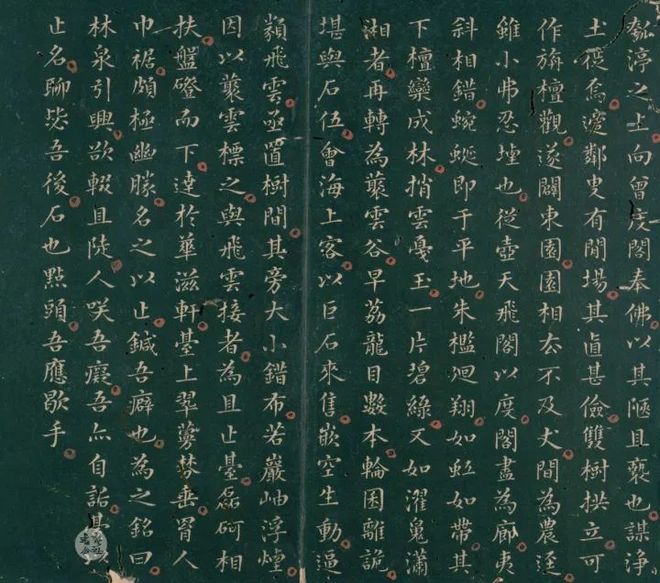 瓠渟之上向曾度閣奉佛以其陿且褻也謀淨
土徙焉邊鄰叟有閒場其直甚儉雙樹拱立可
作旃檀觀遂闢東園園相去不及丈間為農逕
雖小弗忍堙也從壺天飛閣以度閣盡為廊夷
斜相錯蜿蜒即于平地朱檻迴翔如虹如帶其
下檀欒成林捎雲戛玉一片碧綠又如濯魂瀟
湘者再轉為藂雲谷早荔龍目數本輪囷離詭
堪與石伍會海上客以巨石來售嵌空生動逼
類飛雲亟置樹間其旁大小錯布若巖岫浮煙
因以藂雲標之與飛雲接者為且止臺磊砢相
扶盤磴而下達於華滋軒臺上翠蘿棼垂罥人
巾裾頗極幽勝名之以止鍼吾癖也為之銘曰
林泉引興欲輟且陡人咲吾癡吾亦自詬其
止名聊毖吾後石也點頭吾應歇手